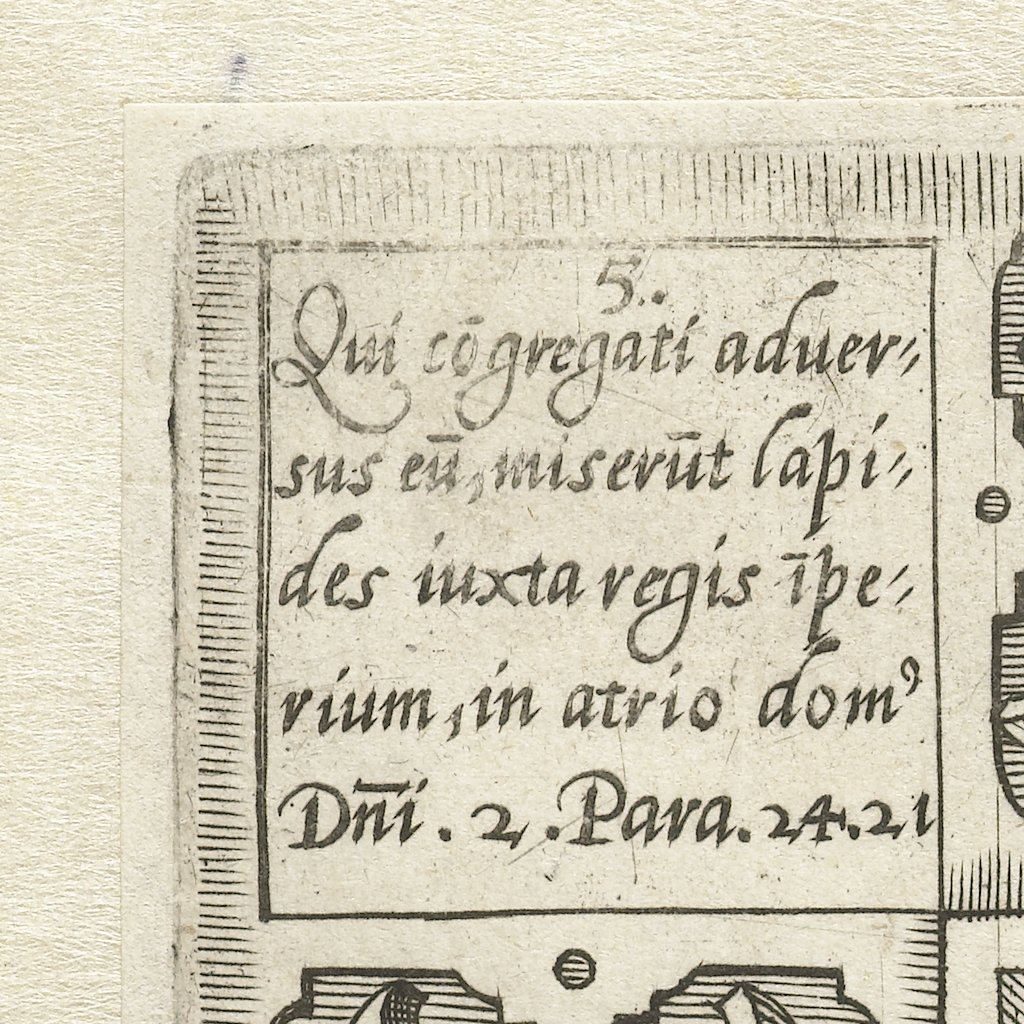 5..
Qui cōgregati aduer-
sus eū, miserūt lapi-
des iuxta regis īpe-
rium, in atrio domꝰ
Dn̄i. 2. Para. 24. 21